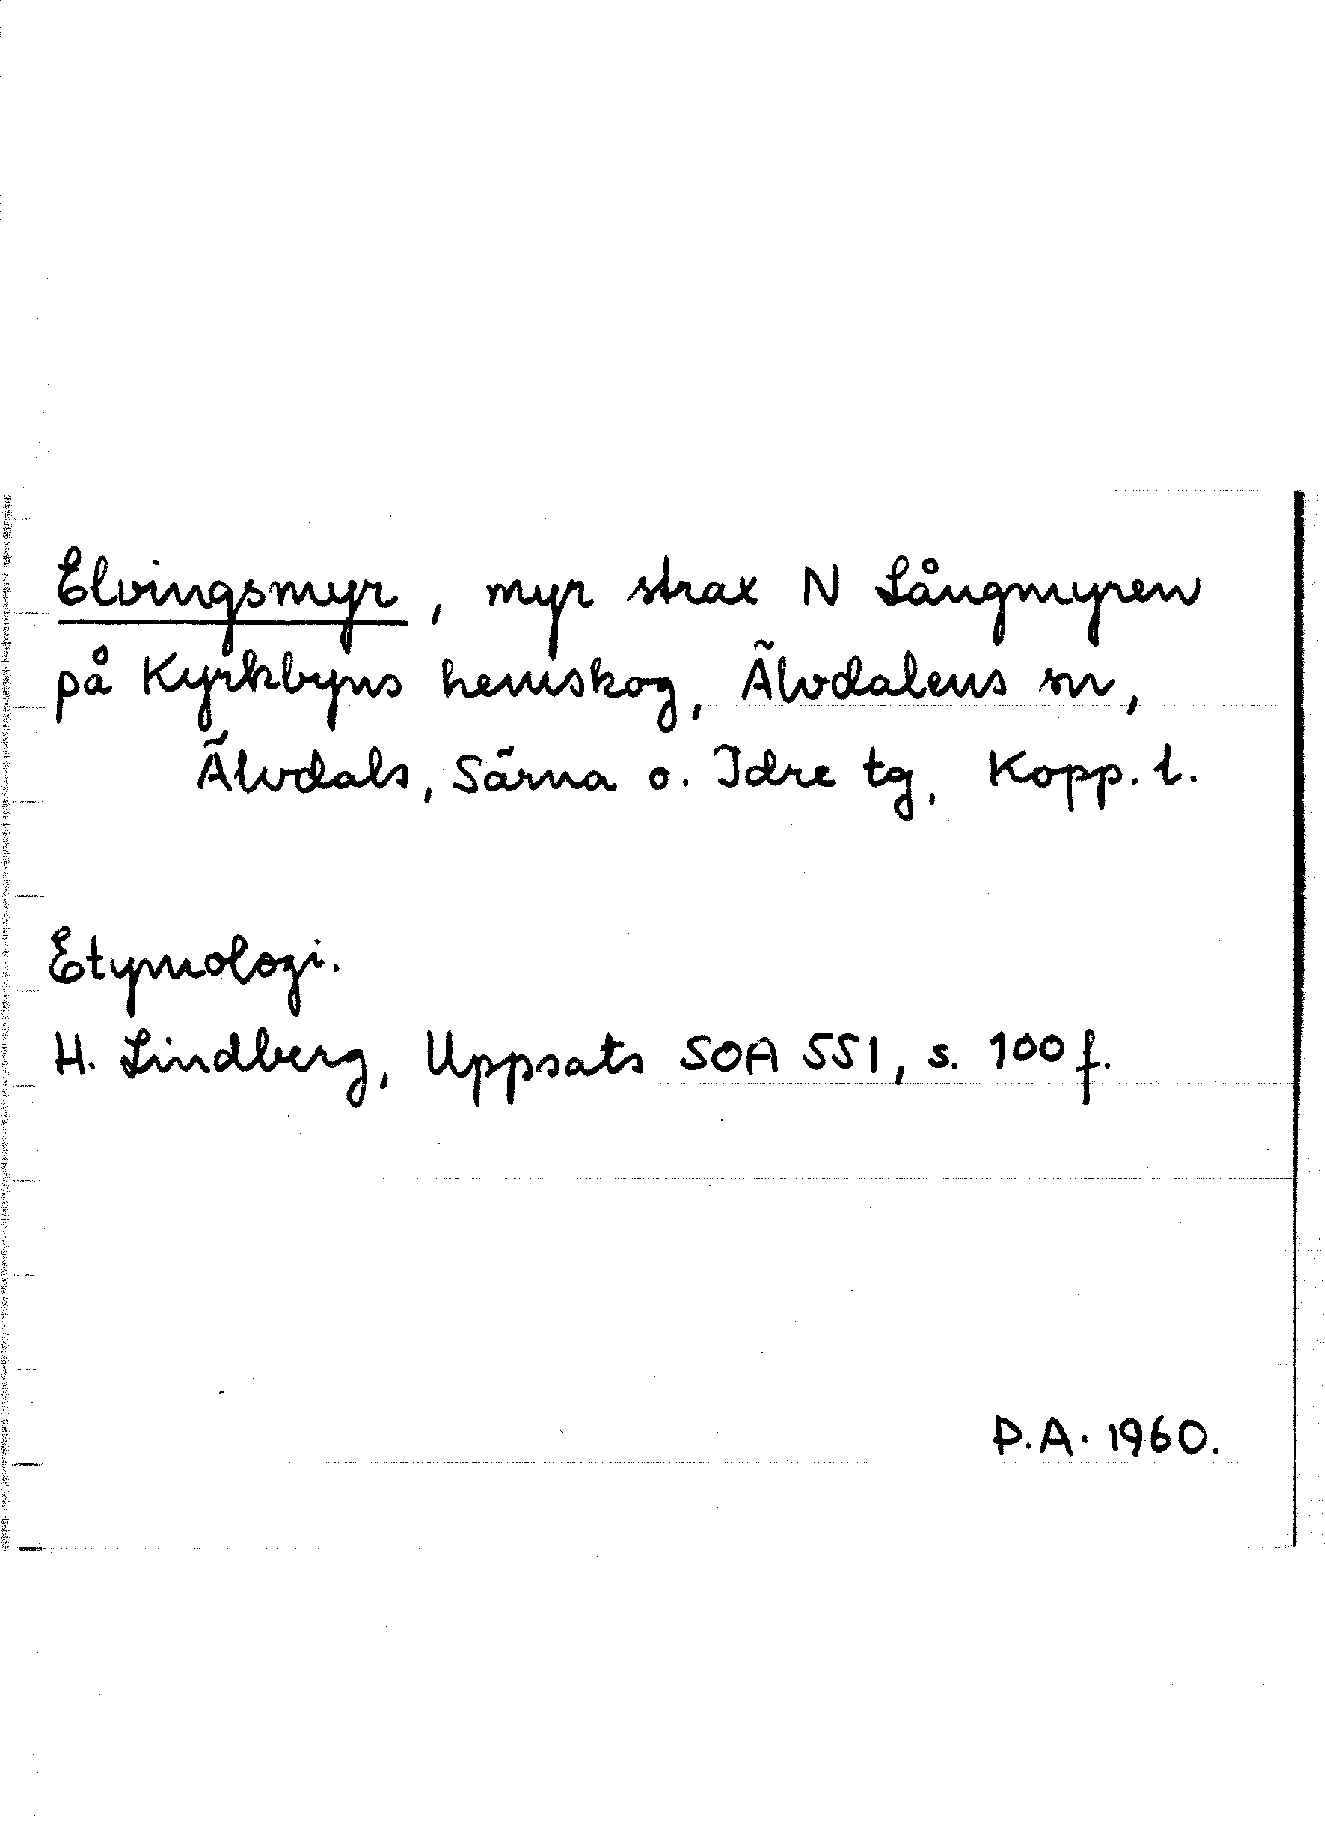 Elvingsmyr, myr strax N Långmyren
på Kyrkbyns hemskog, Älvdalens sn,
Älvdals, Särna o. Idre tg, Kopp. l.
Etymologi.
H. Lindberg, Uppsats SOA 551, s. 100 f.
P.A. 1960.